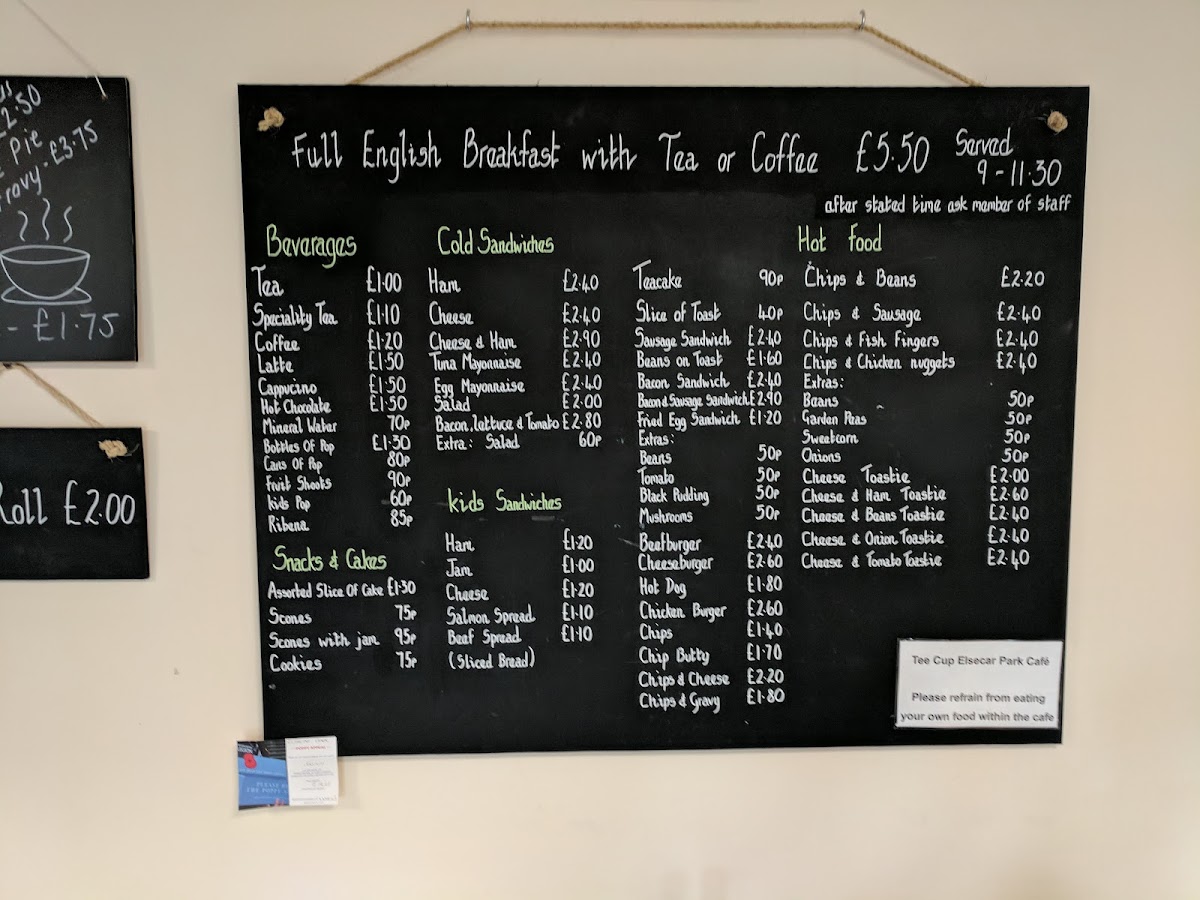 £2.50
Pie
£3.75
- £1.75
Roll £2.00
Full English Breakfast with Tea or Coffee £5.50
Served
9 - 11.30
after stated time ask member of staff
Beverages
Tea £1.00
Speciality Tea £1.10
Coffee £1.20
Latte £1.50
Cappucino £1.50
Hot Chocolate £1.50
Mineral Water 70p
Bottles Of Pop £1.30
Cans Of Pop 80p
Fruit Shoots 90p
kids Pop 60p
Ribena 85p
Snacks & Cakes
Assorted Slice Of Cake £1.30
Scones 75p
Scones with jam 95p
Cookies 75p
Cold Sandwiches
Ham £2.40
Cheese £2.40
Cheese & Ham £2.90
Tuna Mayonnaise £2.40
Egg Mayonnaise £2.40
Salad £2.00
Bacon, lettuce & Tomato £2.80
Extra: Salad 60p
kids Sandwiches
Ham £1.20
Jam £1.00
Cheese £1.20
Salmon Spread £1.10
Beef Spread £1.10
(Sliced Bread)
Teacake 90p
Slice of Toast 40p
Sausage Sandwich £2.40
Beans on Toast £1.60
Bacon Sandwich £2.40
Bacon & Sausage Sandwich £2.90
Fried Egg Sandwich £1.20
Extras:
Beans 50p
Tomato 50p
Black Pudding 50p
Mushrooms 50p
Beefburger £2.40
Cheeseburger £2.60
Hot Dog £1.80
Chicken Burger £2.60
Chips £1.40
Chip Butty £1.70
Chips & Cheese £2.20
Chips & Gravy £1.80
Hot Food
Chips & Beans £2.20
Chips & Sausage £2.40
Chips & Fish Fingers £2.40
Chips & Chicken nuggets £2.40
Extras:
Beans 50p
Garden Peas 50p
Sweetcorn 50p
Onions 50p
Cheese Toastie £2.00
Cheese & Ham Toastie £2.60
Cheese & Beans Toastie £2.40
Cheese & Onion Toastie £2.40
Cheese & Tomato Toastie £2.40
Tee Cup Elsecar Park Café
Please refrain from eating
your own food within the cafe